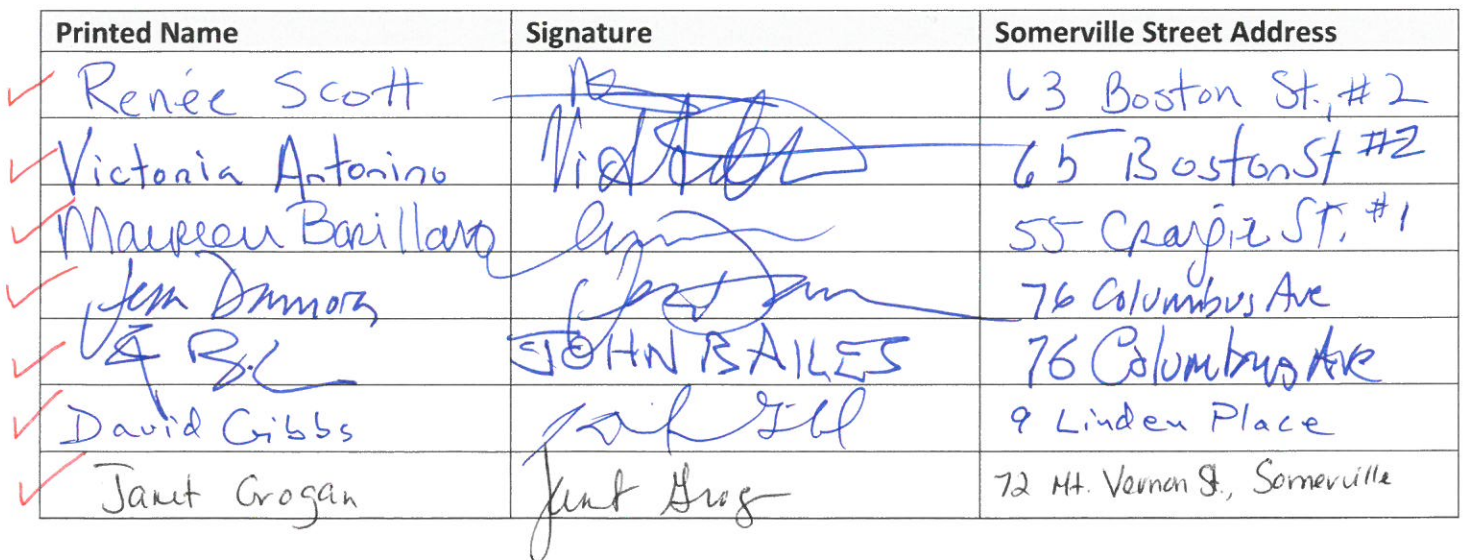 Printed Name Signature Somerville Street Address
Renée Scott 63 Boston St., #2
Victoria Antonino 65 Boston St #2
Maureen Barillaro 55 Craigie St. #1
Jess Damora 76 Columbus Ave
JOHN BAILES 76 Columbus Ave
David Gibbs 9 Linden Place
Janet Grogan Janet Grog 72 Mt. Vernon St., Somerville